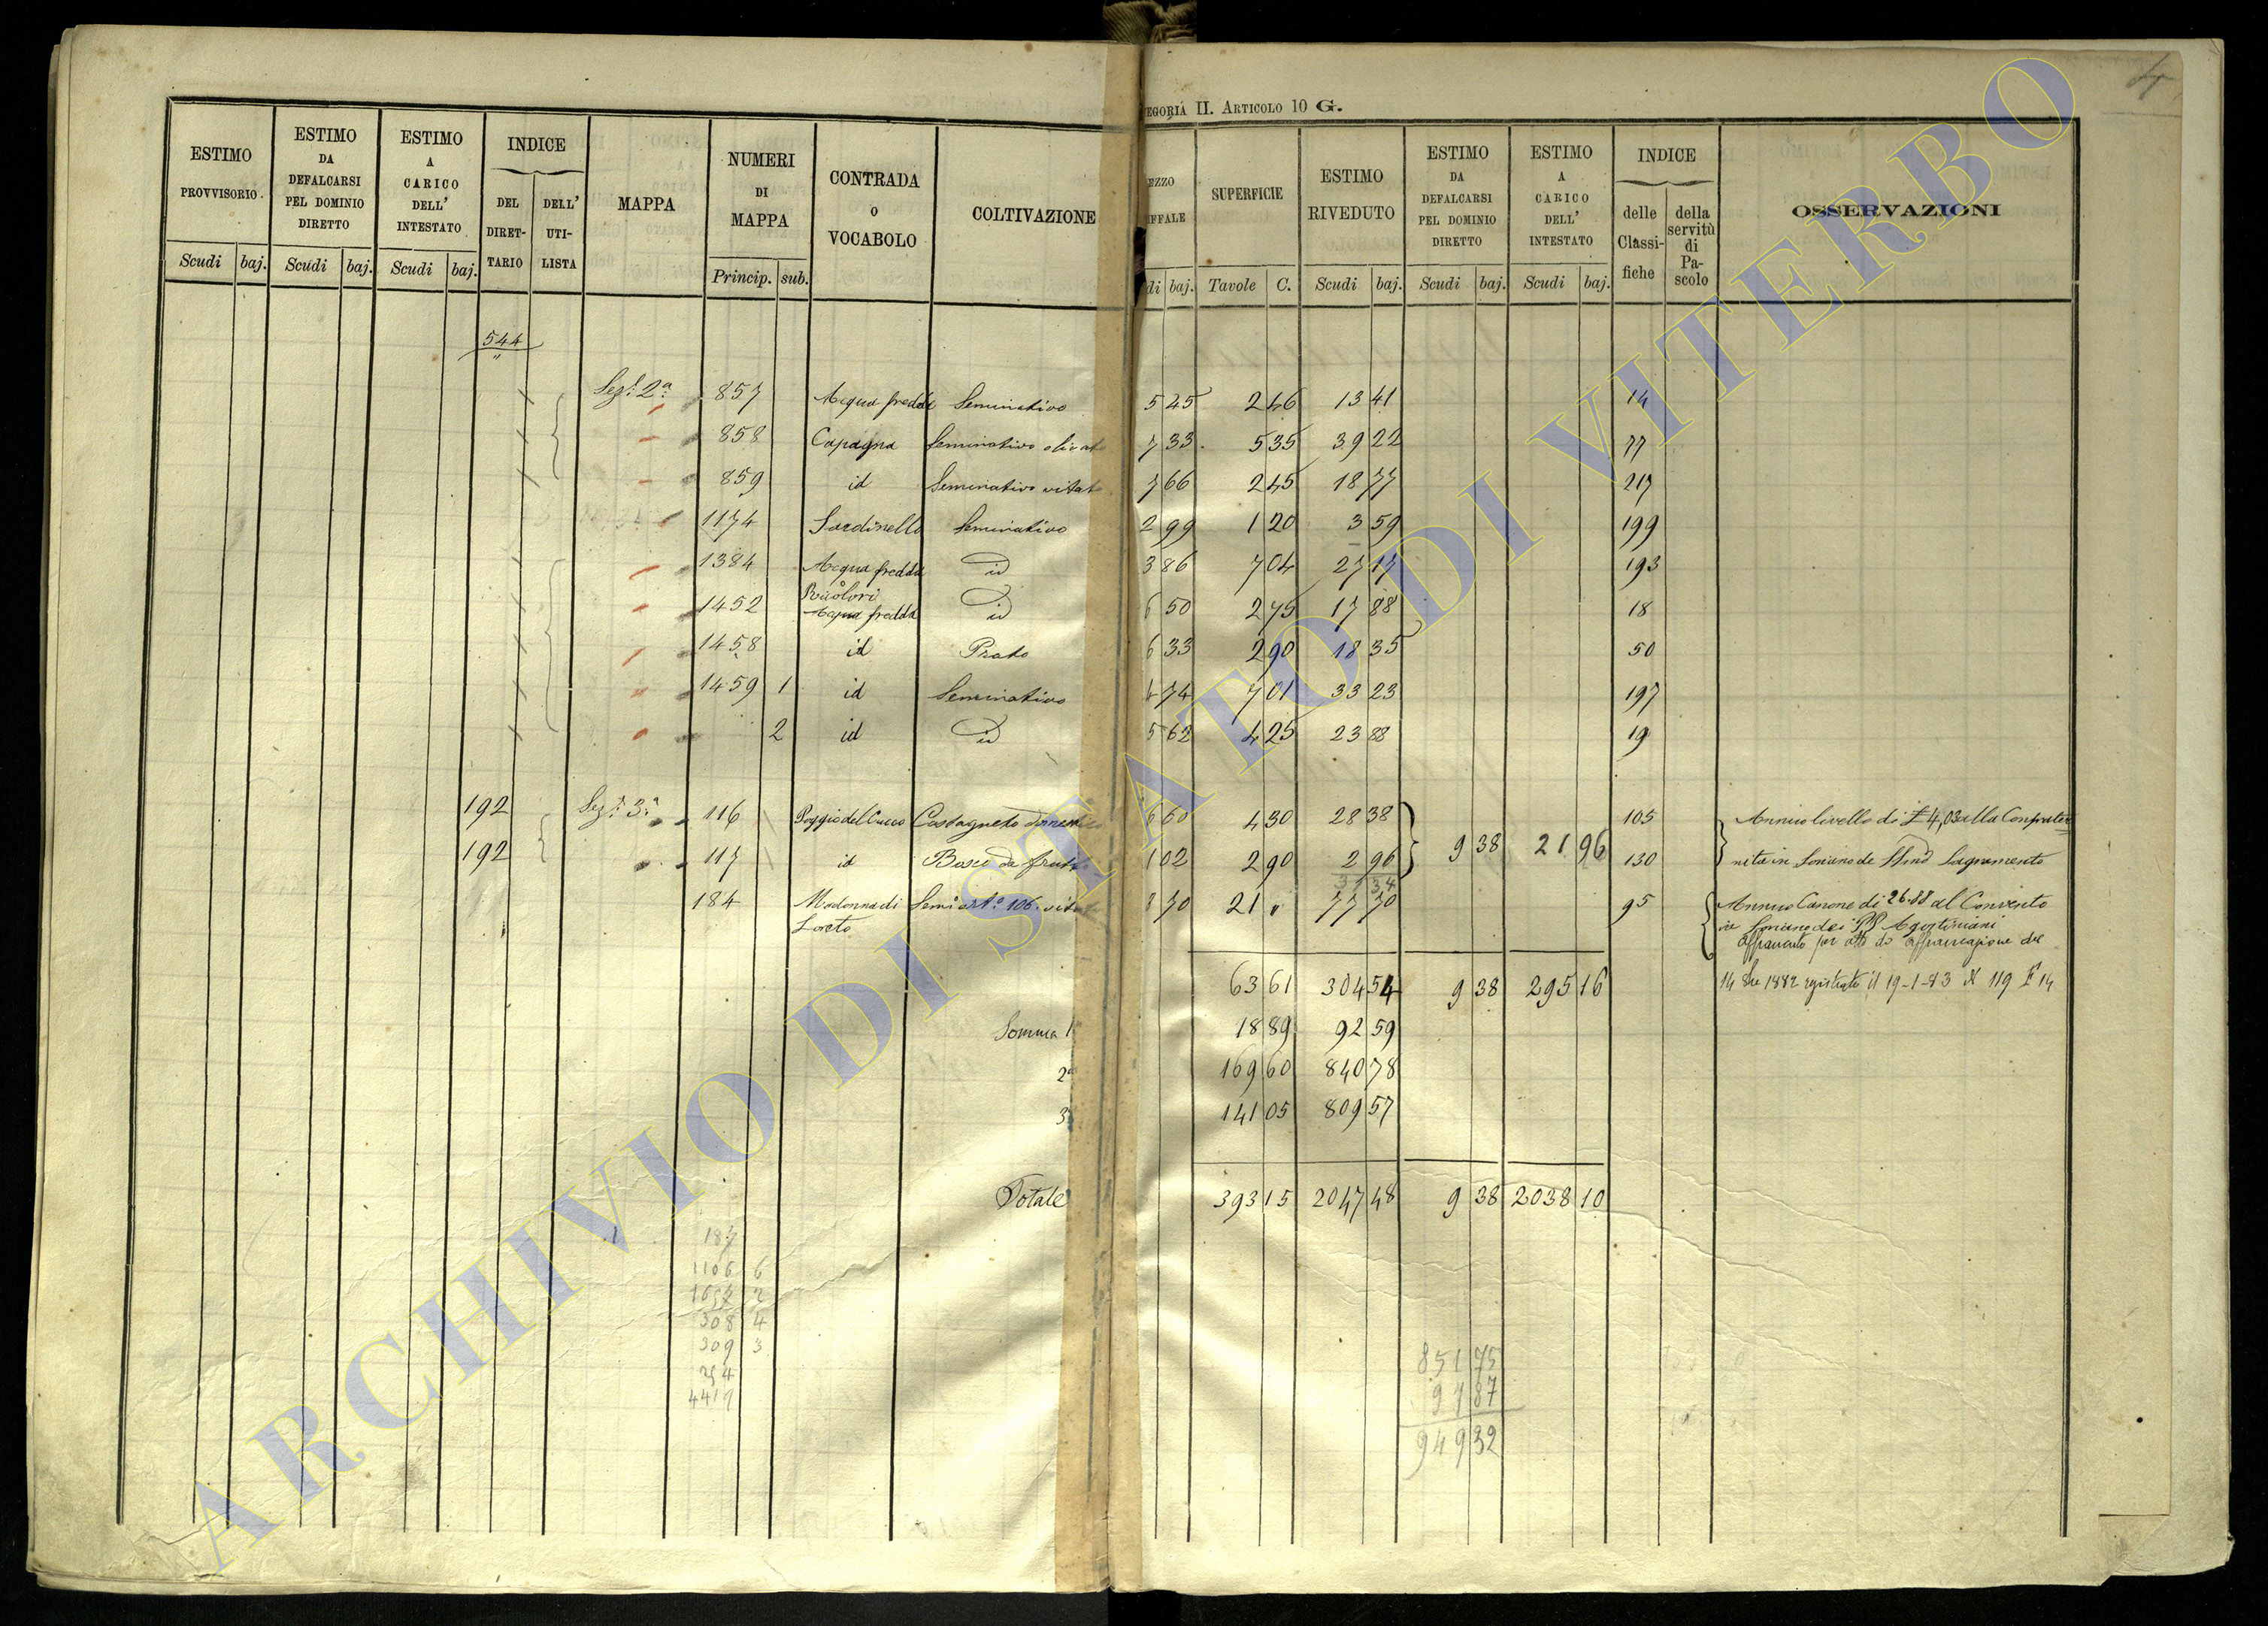 4
EGORIA II. ARTICOLO 10 G.
ESTIMO PROVVISORIO Scudi baj.
ESTIMO DA DEFALCARSI PEL DOMINIO DIRETTO Scudi baj.
ESTIMO A CARICO DELL' INTESTATO Scudi baj.
INDICE DEL DIRETTARIO DELL' UTILISTA
MAPPA
NUMERI DI MAPPA Princip. sub.
CONTRADA O VOCABOLO
COLTIVAZIONE
EZZO FFALE di baj.
SUPERFICIE Tavole C.
ESTIMO RIVEDUTO Scudi baj.
ESTIMO DA DEFALCARSI PEL DOMINIO DIRETTO Scudi baj.
ESTIMO A CARICO DELL' INTESTATO Scudi baj.
INDICE delle Classifiche della servitù di Pascolo
OSSERVAZIONI
544
Sez.e 2a 857 Acqua fredda Seminativo 5 45 2 46 13 41 14
858 Capagna Seminativo olivato 7 33 5 35 39 22 77
859 id Seminativo vitato 7 66 2 45 18 77 217
1174 Sardinello Seminativo 2 99 1 20 3 59 199
1384 Acqua fredda id 3 86 7 04 27 17 193
1452 Acqua fredda id 6 50 2 75 17 88 18
1458 id Prato 6 33 2 90 18 35 50
1459 1 id Seminativo 4 74 7 01 33 23 197
2 id id 5 62 4 25 23 88 19
192 Sez.e 3a 116 Poggio del Cucco Castagneto domestico 6 60 4 30 28 38 9 38 21 96 105 Annuo livello di £ 4,03 alla Confrater
192 117 id Bosco da frutto 1 02 2 90 2 96 130 nita in Soriano del SSmo Sagramento
31 34
184 Madonna di Loreto 3 70 21 " 77 70 95 Annuo Canone di 26.88 al Convento
in Soriano dei PP Agostiniani
affrancato per atto di affrancazione del
14 1882 registrato il 19-1-83 N 119 F 14
63 61 304 54 9 38 295 16
Somma 1a 18 89 92 59
2a 169 60 840 78
3a 141 05 809 57
Totale 393 15 2047 48 9 38 2038 10
187
1106 6
2
308 4
309 3
851 75
97 87
949 32
ARCHIVIO DI STATO DI VITERBO